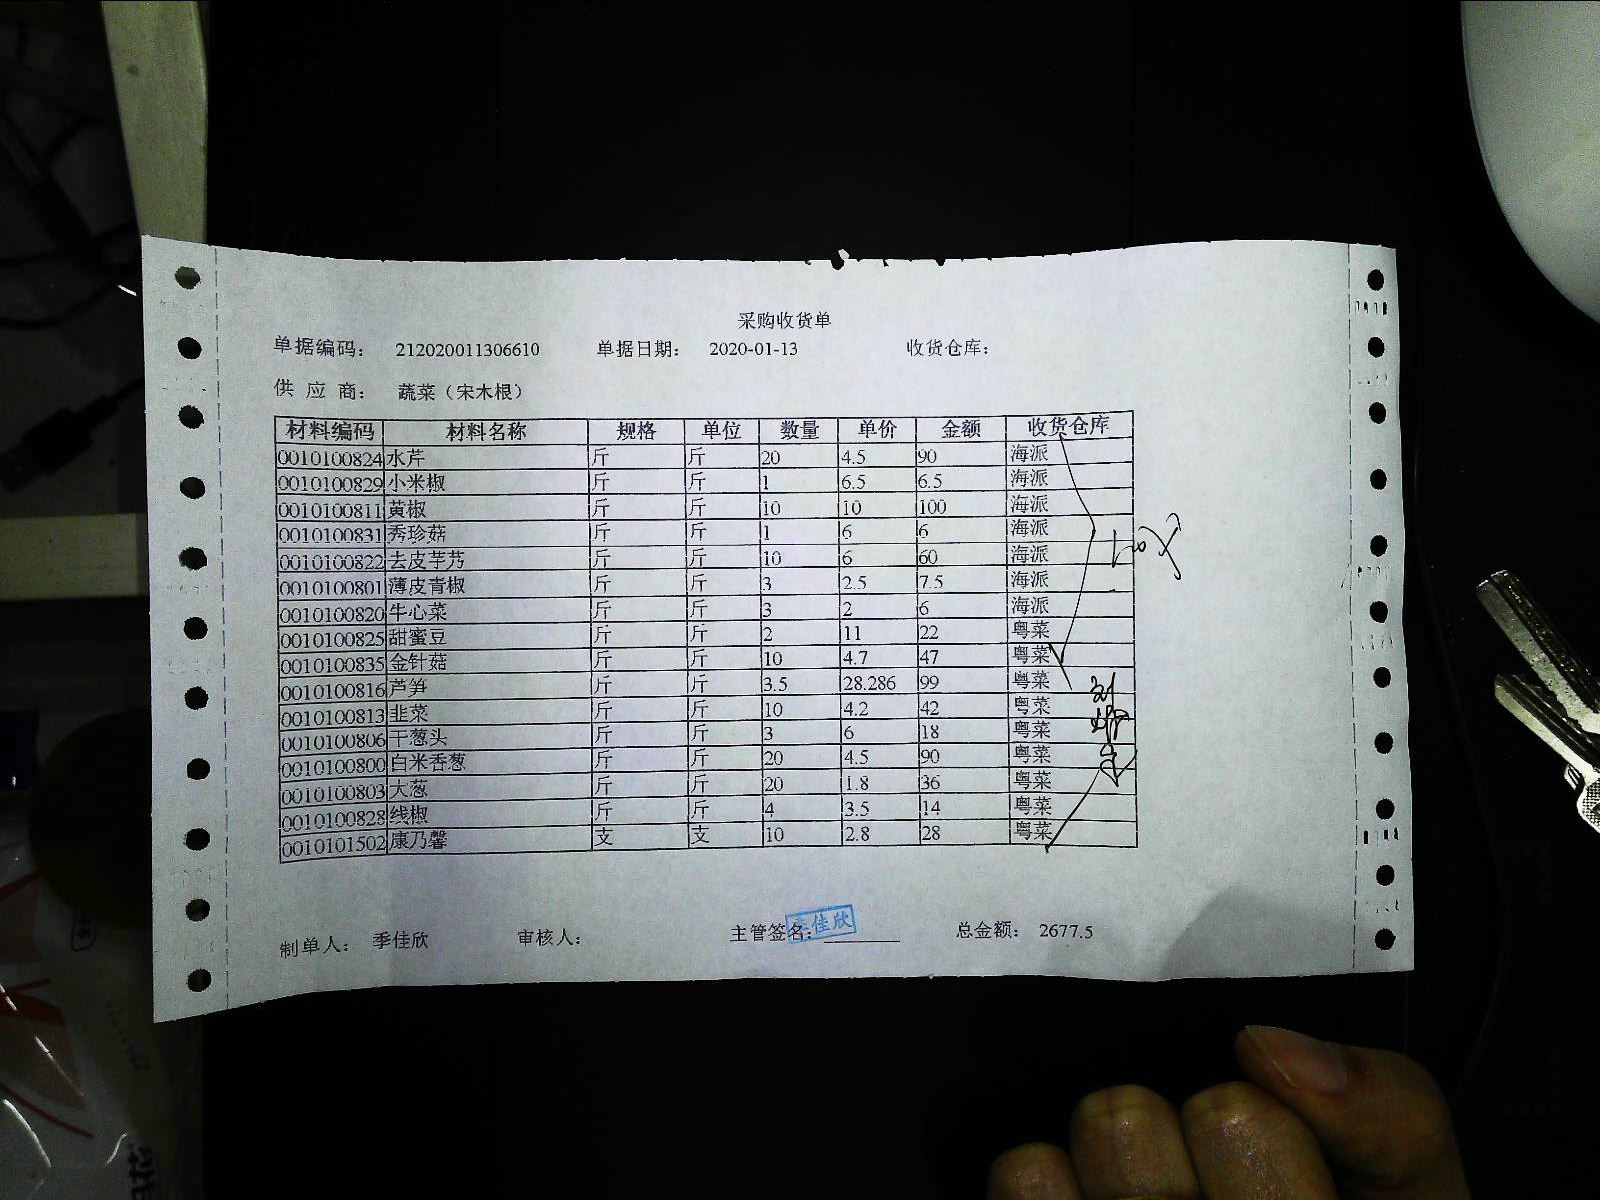 采购收货单
单据编码： 212020011306610 单据日期： 2020-01-13 收货仓库：
供 应 商： 蔬菜（宋木根）
材料编码 材料名称 规格 单位 数量 单价 金额 收货仓库
0010100824 水芹 斤 斤 20 4.5 90 海派
0010100829 小米椒 斤 斤 1 6.5 6.5 海派
0010100811 黄椒 斤 斤 10 10 100 海派
0010100831 秀珍菇 斤 斤 1 6 6 海派
0010100822 去皮芋艿 斤 斤 10 6 60 海派
0010100801 薄皮青椒 斤 斤 3 2.5 7.5 海派
0010100820 牛心菜 斤 斤 3 2 6 海派
0010100825 甜蜜豆 斤 斤 2 11 22 粤菜
0010100835 金针菇 斤 斤 10 4.7 47 粤菜
0010100816 芦笋 斤 斤 3.5 28.286 99 粤菜
0010100813 韭菜 斤 斤 10 4.2 42 粤菜
0010100806 干葱头 斤 斤 3 6 18 粤菜
0010100800 白米香葱 斤 斤 20 4.5 90 粤菜
0010100803 大葱 斤 斤 20 1.8 36 粤菜
0010100828 线椒 斤 斤 4 3.5 14 粤菜
0010101502 康乃馨 支 支 10 2.8 28 粤菜
制单人： 季佳欣 审核人： 主管签名： 季佳欣 总金额： 2677.5